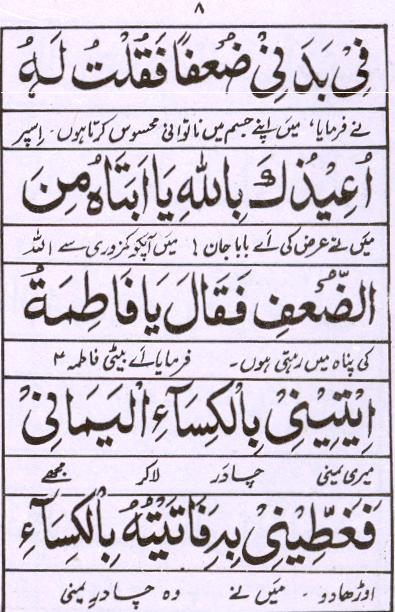 ۸
فِىْ بَدَنِىْ ضُعْفًا فَقُلْتُ لَهٗ
نے فرمایا، میں اپنے جسم میں ناتوانی محسوس کرتا ہوں۔ اسپر
اُعِيْذُكَ بِاللهِ يَا اَبَتَاهُ مِنَ
میں نے عرض کی اے بابا جان! میں آپکو کمزوری سے اللہ
الضُّعْفِ فَقَالَ يَا فَاطِمَةُ
کی پناہ میں رہتی ہوں۔ فرمایا اے بیٹی فاطمہ ؑ
اِيْتِيْنِىْ بِالْكِسَآءِ الْيَمَانِىْ
میری یمنی چادر لاکر مجھے
فَغَطِّيْنِىْ بِهٖ فَاَتَيْتُهٗ بِالْكِسَآءِ
اوڑھا دو۔ میں نے وہ چادر یمنی